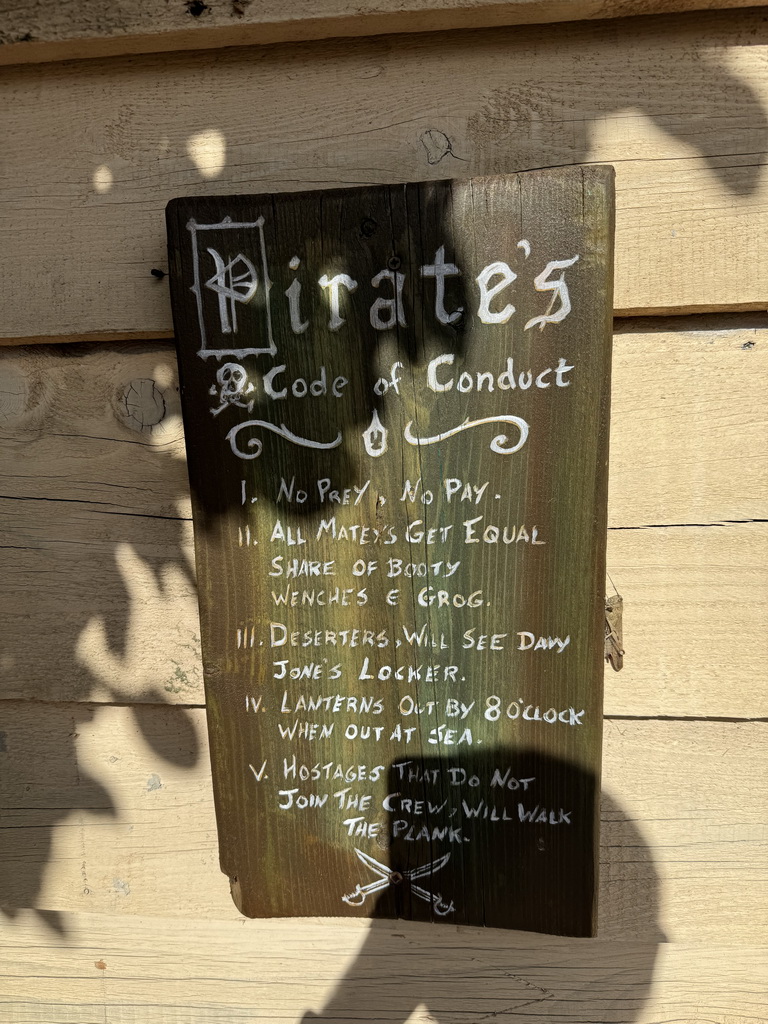 Pirate's
Code of Conduct
I. No Prey, No Pay.
II. All Matey's Get Equal
Share of Booty
Wenches & Grog.
III. Deserters, Will See Davy
Jone's Locker.
IV. Lanterns Out By 8 o'clock
When Out At Sea.
V. Hostages That Do Not
Join The Crew, Will Walk
The Plank.